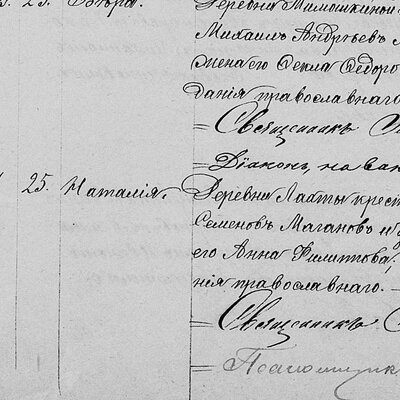 25. Деревни Мимошкиной
Михаилъ Андреевъ
жена его Фекла Ѳедоро
данія православнаго
= Священникъ
= Діаконъ, на вак
25. Наталія. Деревни Лахты крест
Семеновъ Магановъ и
его Анна Филиппова,
нія православнаго. —
= Священникъ
= Псаломщик